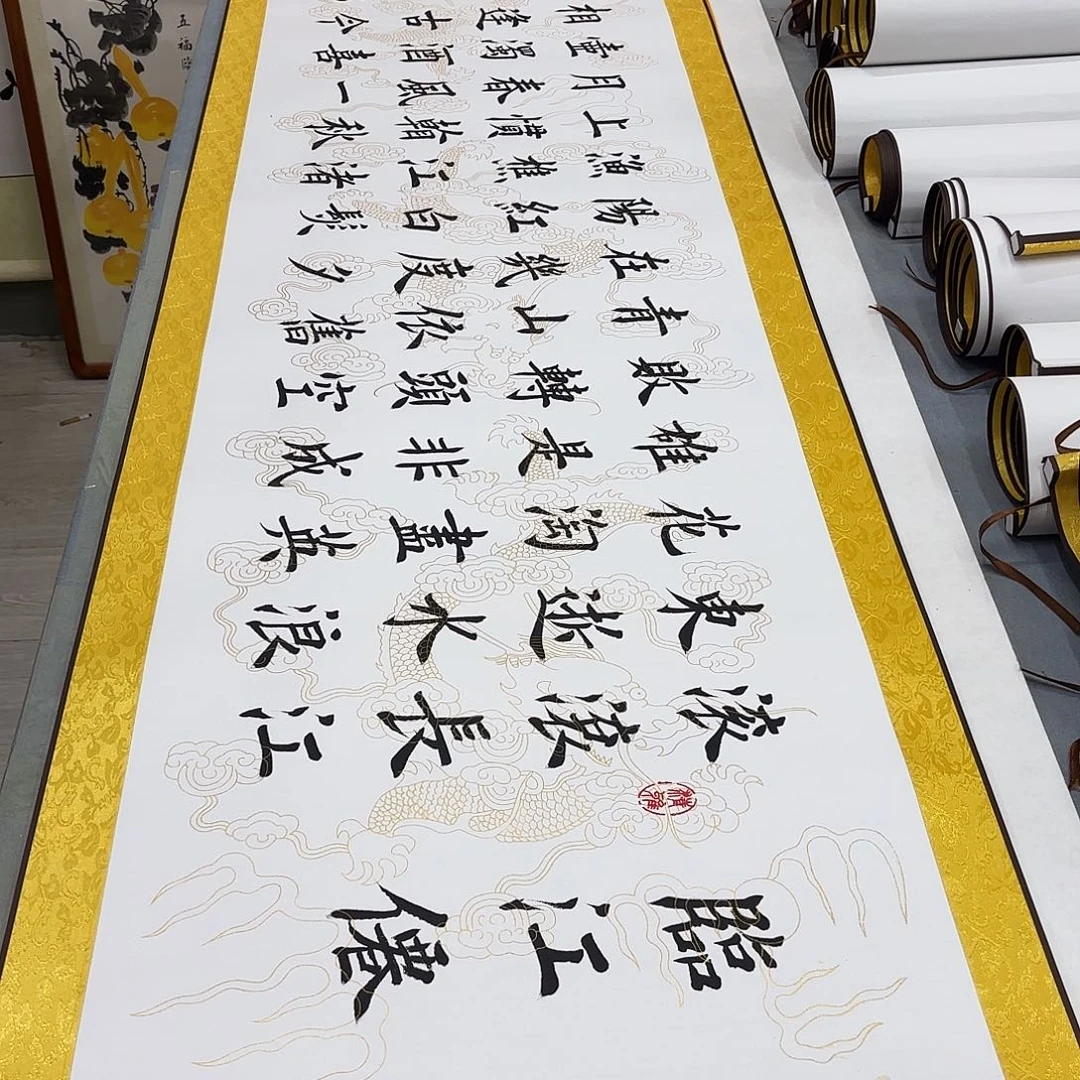 臨江僊
滚滚長江
東逝水浪
花淘盡英
雄是非成
敗轉頭空
青山依舊
在幾度夕
陽紅白髮
漁樵江渚
上慣看秋
月春風一
壺濁酒喜
相逢古今
五福